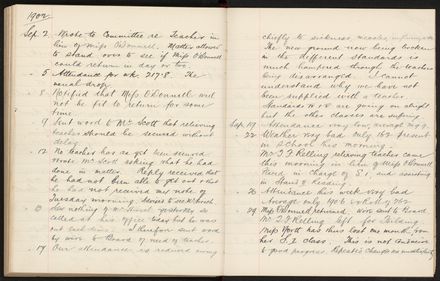 1902
Sep. 2 Wrote to Committee re Teacher in
lieu of Miss O'Donnell. Matter allowed
to stand over to see if Miss O'Donnell
could return in day or two.
5 Attendance for wk 217.8. The
usual drop.
8 Notified that Miss O'Donnell will
not be fit to return for some
time.
9 Sent word to Mr Scott that relieving
teacher should be secured without
delay.
12 No teacher has as yet been secured
Wrote Mr Scott asking what he had
done in matter. Reply received that
he had not been able to get out & that
he had not received my note of
Tuesday morning.
called at his office today but he was
out each time. I therefore sent word
by wire to Board of need of teacher.
19 Our attendance is reduced owing
chiefly to sickness, measles,
The new ground now being broken
in the different standards is
much hampered through the teachers
being disarranged. I cannot
understand why we have not
been supplied with a teacher.
Standards are going on alright
but the other classes are suffering
Sep. 19 Attendance very low average
22 Weather very bad only 162 present
in School this morning.
Mr J F Kelling relieving teacher came
this morning in lieu of Miss O'Donnell
Placed in charge of S1, and assisting
in Reading.
26 Attendance this week very bad
Average only 190.6
29 Miss O'Donnell returned. Wire sent to Board
Mr J. F Kelling left for Feilding
Miss North has thus lost one month from
her S.2 class. This is not conducive
to good progress. Repeated changes are unsettling